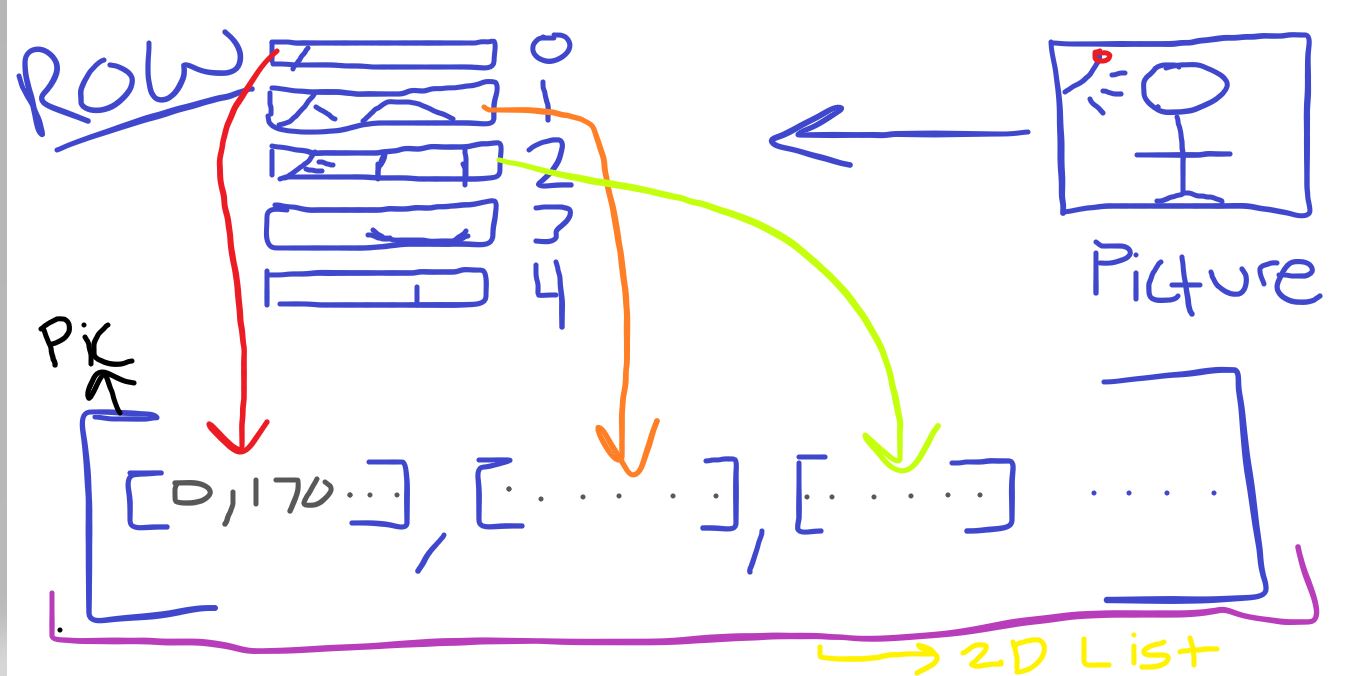 ROW
0
1
2
3
4
Picture
Pic
[ [0,170...] , [......] , [......] .... ]
2D List